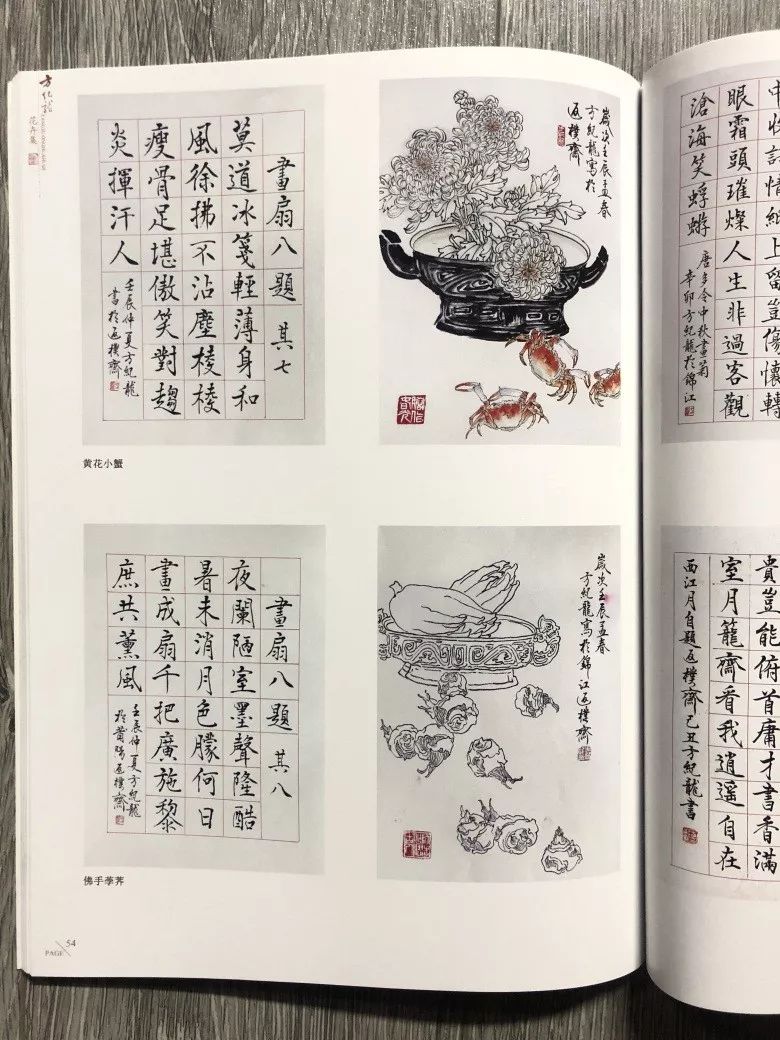 方紀龍
花卉集
畫扇八題 其七
莫道冰箋輕薄身和
風徐拂不沾塵棱棱
瘦骨足堪傲笑對趨
炎揮汗人
壬辰仲夏方紀龍
書於返樸齋
歲次壬辰孟春
方紀龍寫於
返樸齋
黄花小蟹
畫扇八題 其八
夜闌陋室墨聲隆酷
暑未消月色朦何日
畫成扇千把廣施黎
庶共薰風
壬辰仲夏方紀龍
於莆陽返樸齋
歲次壬辰孟春
方紀龍寫於錦江返樸齋
佛手荸荠
PAGE 54
上留豈傷懷轉
眼霜頭璀燦人生非過客觀
滄海笑蜉蝣
唐多令中秋畫菊
辛卯方紀龍於錦江
貴豈能俯首庸才書香滿
室月籠齋看我逍遙自在
西江月自題返樸齋己丑方紀龍書